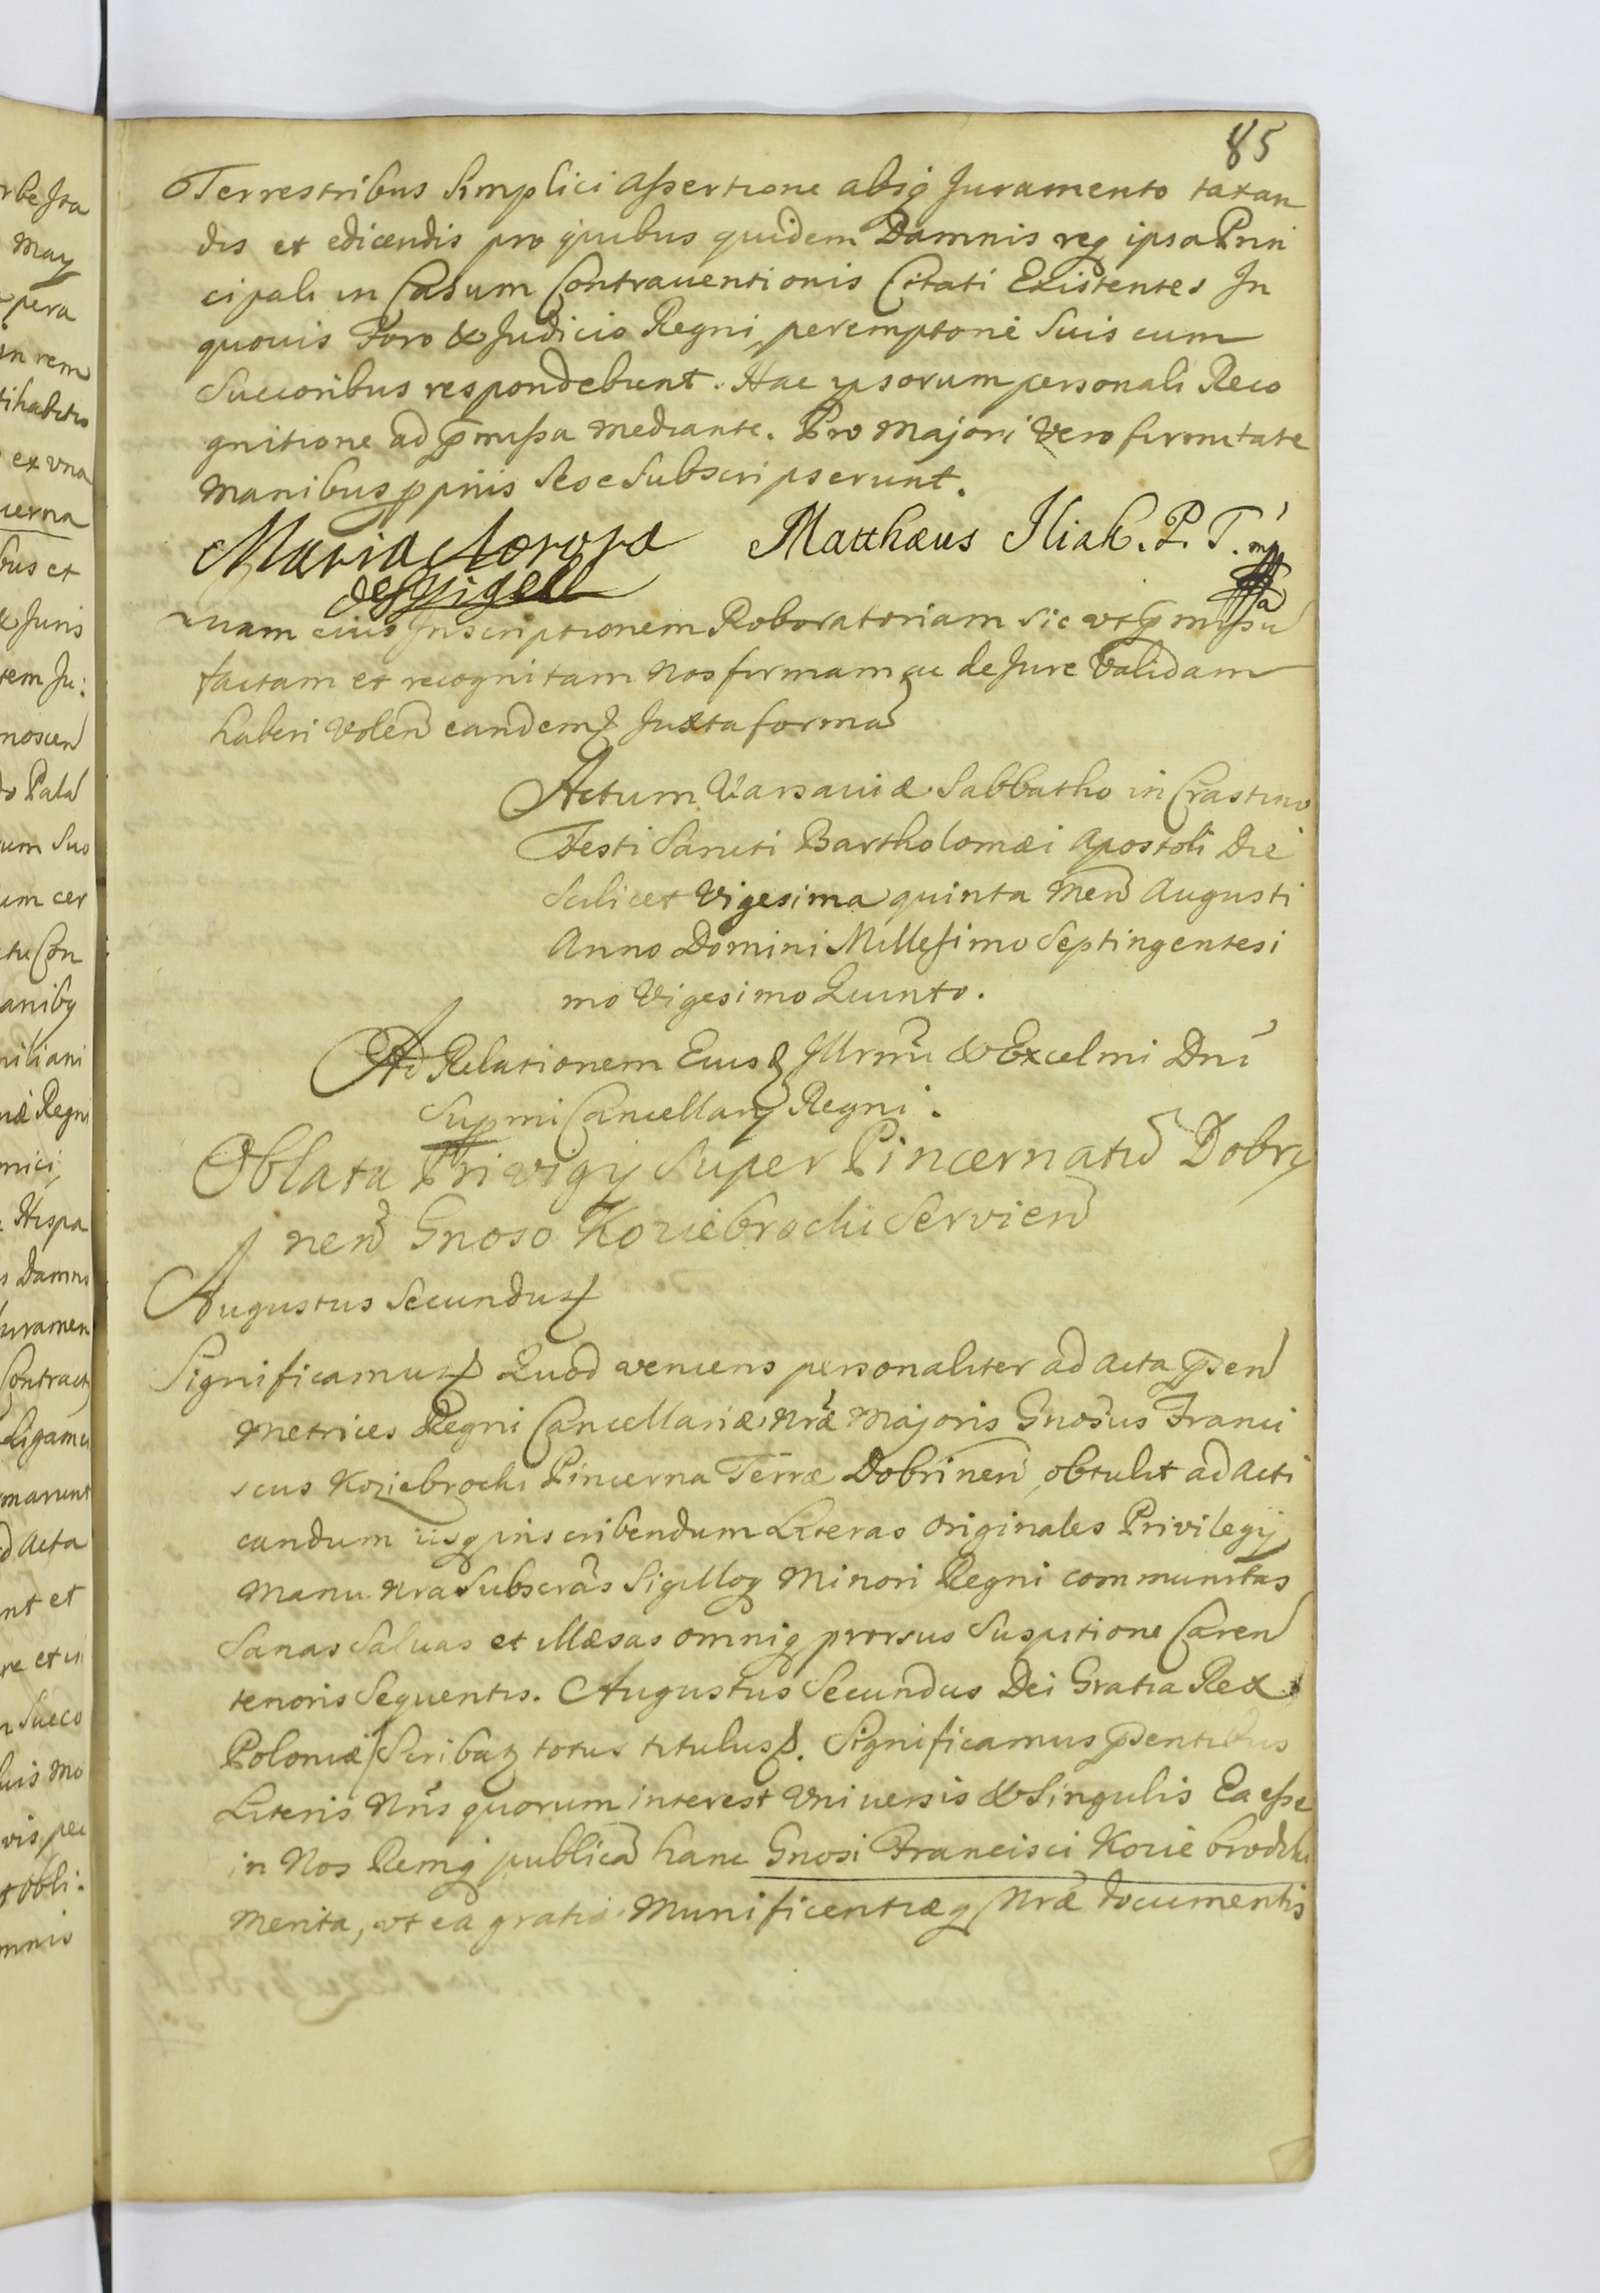 85
Terrestribus Simplici assertione absq Juramento taxan
dis et edicendis pro quibus quidem Damnis req ipsa Prin
cipali in Casum Contrauentionis Citati Existentes In
quouis Foro & Judicio Regni peremptorie Suis cum
Succoribus respondebunt. Hac ipsorum personali Reco
gnitione ad pmissa mediante. Pro Majori Vero firmitate
Manibus ppriis Sese Subscripserunt.
Maria Aorora Matthæus Iliak. P. T. mp
de Spigell
Quam eius Inscriptionem Roboratoriam sic vt pmissu
factam et recognitam nos firmam ac de Jure Validam
haberi Volen eandem Juxta forma
Actum Varsauiæ Sabbatho in Crastino
Festi Sancti Bartholomæi Apostoli Die
Scilicet Vigesima quinta Men Augusti
Anno Domini Millesimo Septingentesi
mo Vigesimo Quinto.
Ad Relationem Eiusd Illrmi & Excelmi Dni
Supmi Cancellarij Regni.
Oblata Privigij Super Pincernatu Dobry
nen Gnoso Koziebrocki Servien
Augustus Secundus
Significamus Quod veniens personaliter ad acta psen
Metrices Regni Cancellariæ nræ Majoris Gnosus Franci
scus Koziebrocki Pincerna Terræ Dobrinen, obtulit ad acti
candum iisq inscribendum Literas originales Privilegij
Manu nra Subscras Sigilloq Minori Regni communitas
Sanas Saluas et illæsas omniq prorsus Suspitione Caren
tenoris Sequentis. Augustus Secundus Dei Gratia Rex
Poloniæ Scribat totus titulus. Significamus psentibus
Literis nris quorum interest Vniuersis & Singulis Ea esse
in Nos Remq publica hanc Gnosi Francisci Kozie brodzki
Merita, vt ea gratiæ Munificentiæq Nræ documentis